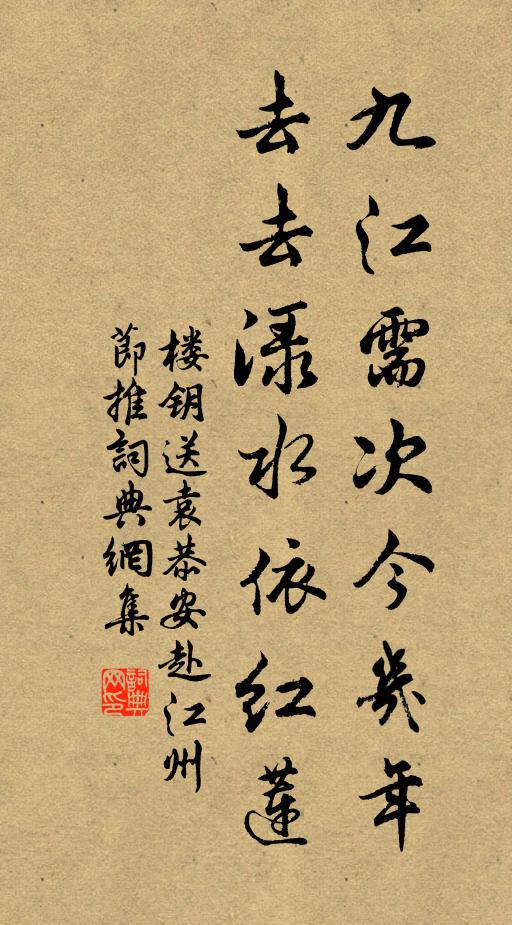 九江需次今幾年
去去渌水依红蓮
楼钥送袁恭安赴江州
節推詞典網集
詞典
网印